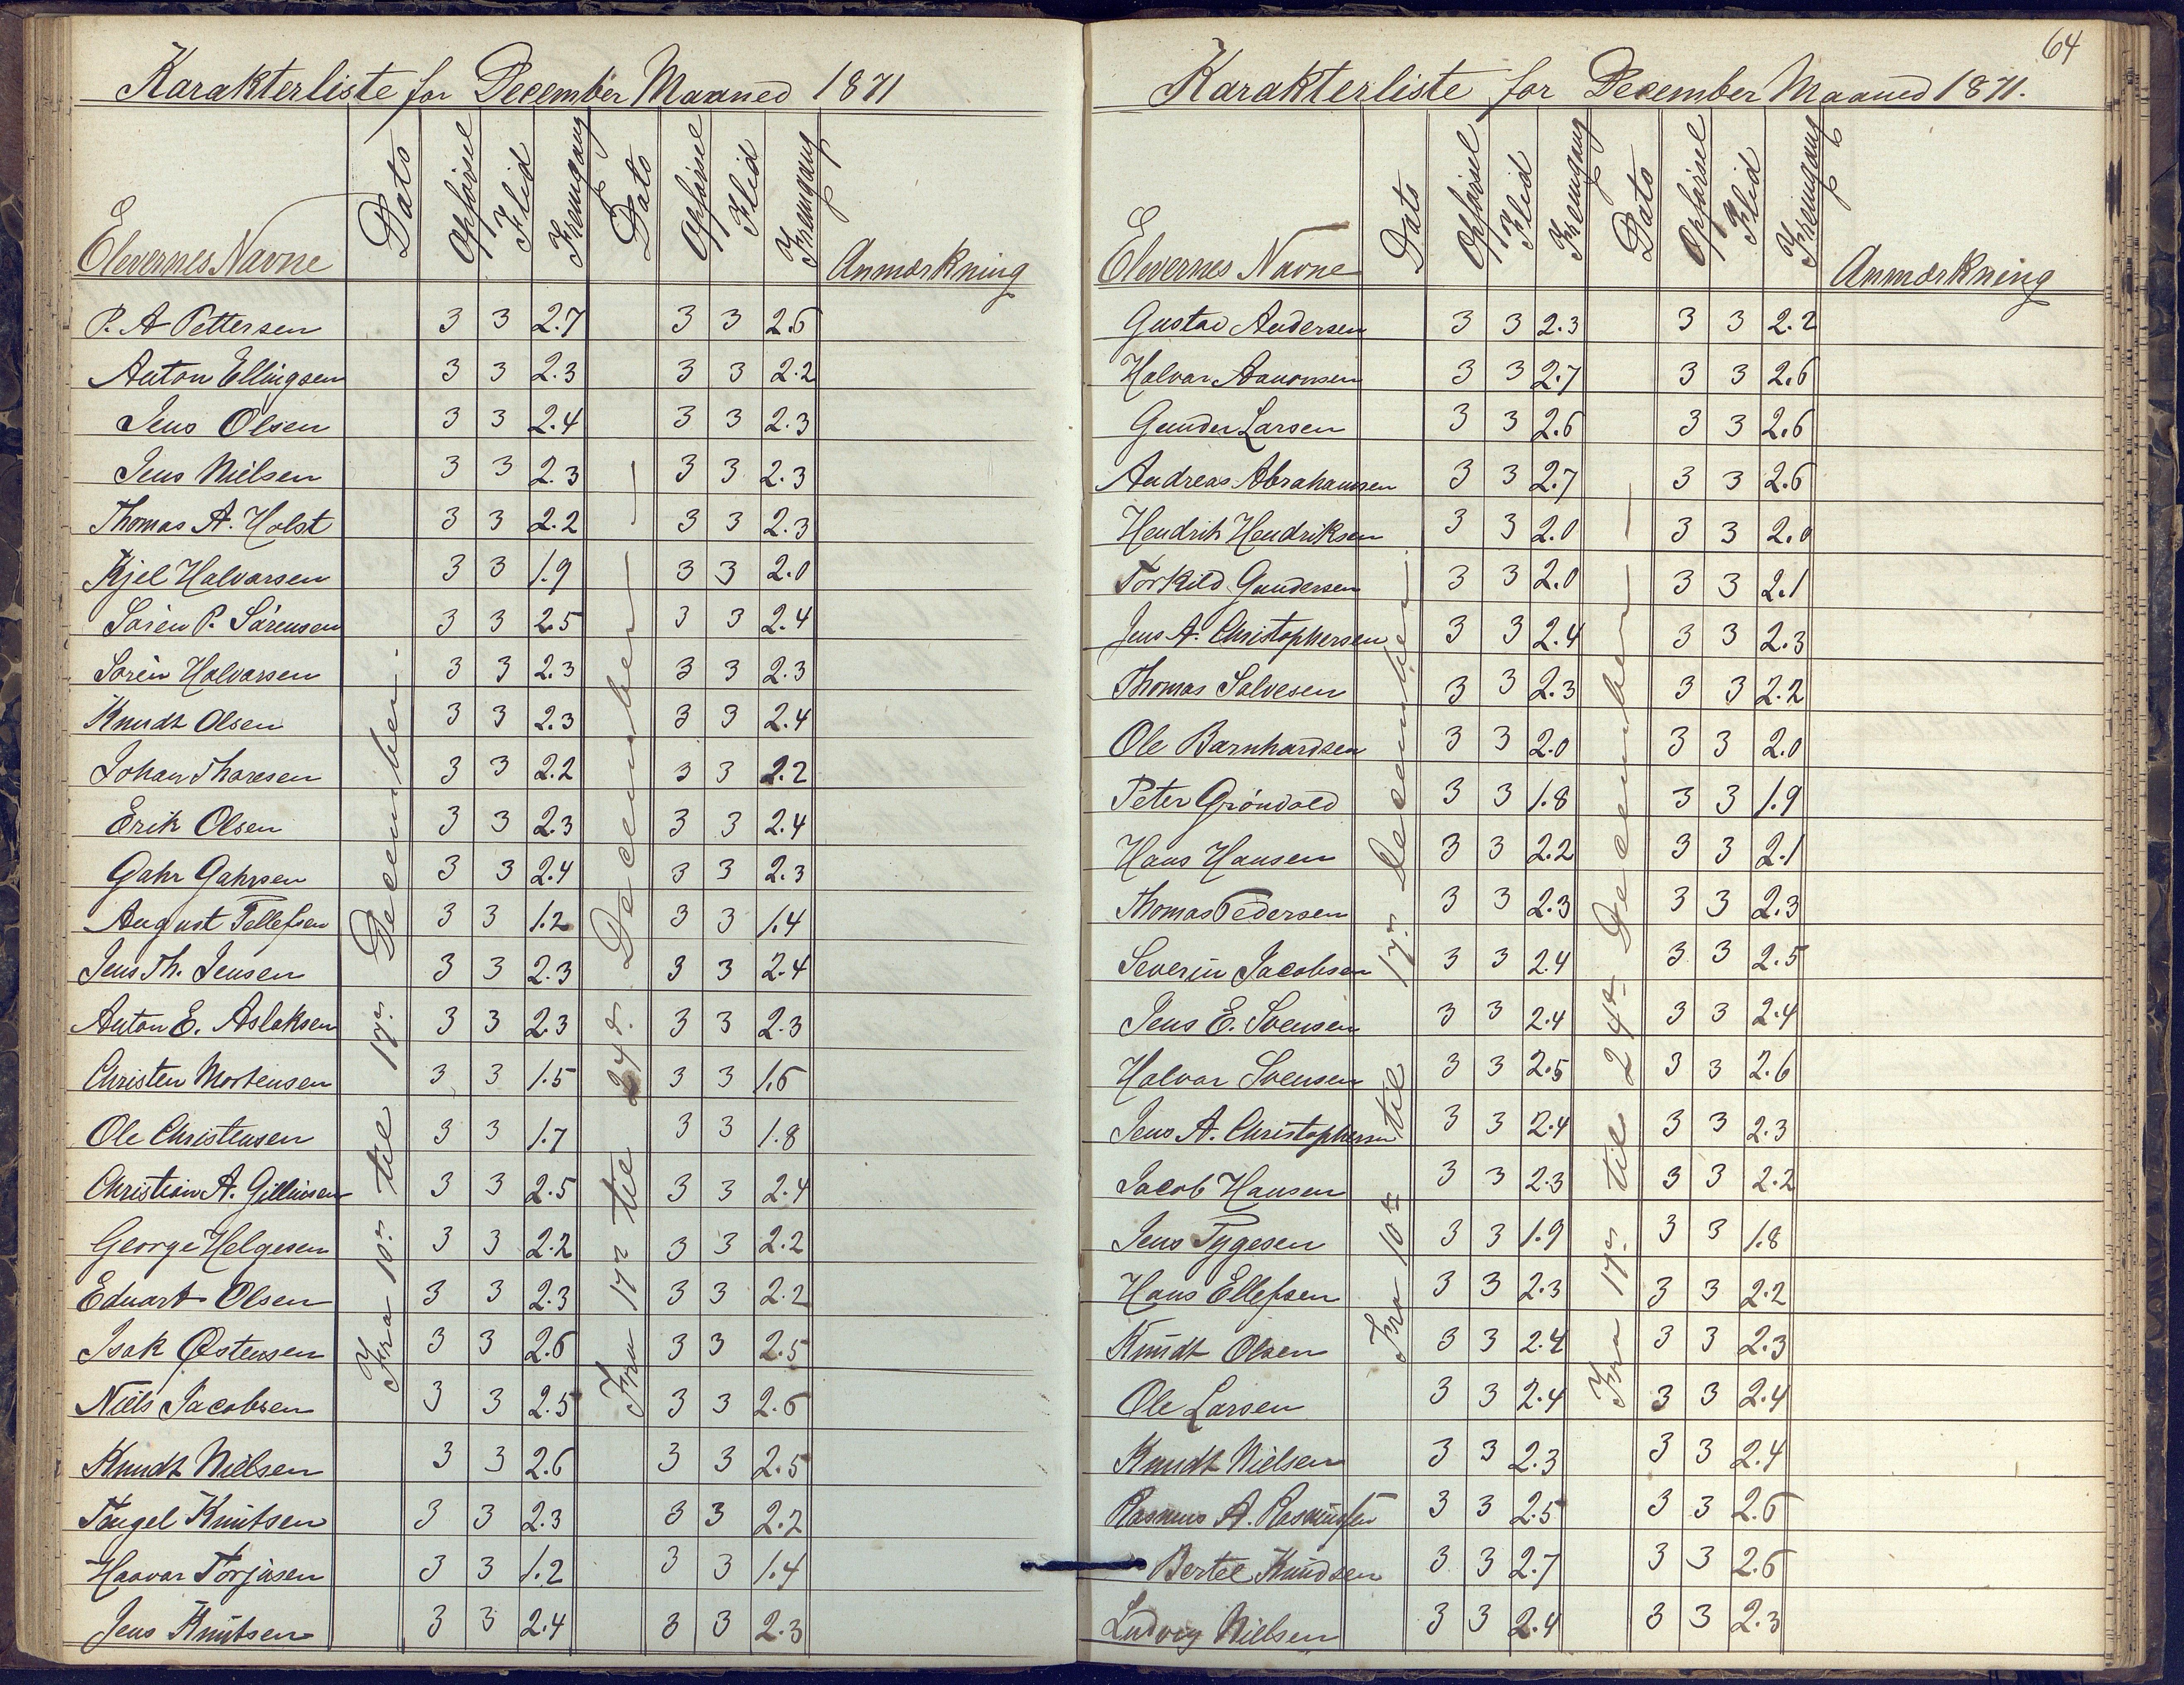 Karakterliste for December Maaned 1871
Elevernes Navne Dato Opförsel Flid Fremgang Dato Opförsel Flid Fremgang Anmærkning
Fra 10de til 17de December.
Fra 17de til 24de December —
P. A Pettersen 3 3 2.7 3 3 2.6
Anton Ellingsen 3 3 2.3 3 3 2.2
Jens Olsen 3 3 2.4 3 3 2.3
Jens Nielsen 3 3 2.3 3 3 2.3
Thomas A. Holst 3 3 2.2 3 3 2.3
Kjel Halvorsen 3 3 1.9 3 3 2.0
Sören P. Sörensen 3 3 2.5 3 3 2.4
Sören Halvorsen 3 3 2.3 3 3 2.3
Knudt Olsen 3 3 2.3 3 3 2.4
Johan Thoresen 3 3 2.2 3 3 2.2
Erik Olsen 3 3 2.3 3 3 2.4
Gahr Gahrsen 3 3 2.4 3 3 2.3
August Tellefsen 3 3 1.2 3 3 1.4
Jens Th. Jensen 3 3 2.3 3 3 2.4
Anton E. Aslaksen 3 3 2.3 3 3 2.3
Christen Mortensen 3 3 1.5 3 3 1.6
Ole Christensen 3 3 1.7 3 3 1.8
Christian A. 3 3 2.5 3 3 2.4
George Helgesen 3 3 2.2 3 3 2.2
Eduart Olsen 3 3 2.3 3 3 2.2
Isak Østensen 3 3 2.6 3 3 2.5
Niels Jacobsen 3 3 2.5 3 3 2.6
Knudt Nielsen 3 3 2.6 3 3 2.5
Knutsen 3 3 2.3 3 3 2.2
Haavar Torjusen 3 3 1.2 3 3 1.4
Jens Knutsen 3 3 2.4 3 3 2.3
64
Karakterliste for December Maaned 1871.
Elevernes Navne Dato Opförsel Flid Fremgang Dato Opförsel Flid Fremgang Anmærkning
Fra 10de til 17de December —
Fra 17de til 24de December —
Gustav Andersen 3 3 2.3 3 3 2.2
Halvor Aanonsen 3 3 2.7 3 3 2.6
Gunder Larsen 3 3 2.6 3 3 2.6
Andreas Abrahamsen 3 3 2.7 3 3 2.6
Hendrik Hendriksen 3 3 2.0 3 3 2.0
Torkild Gundersen 3 3 2.0 3 3 2.1
Jens A. Christophersen 3 3 2.4 3 3 2.3
Thomas Salvesen 3 3 2.3 3 3 2.2
Ole Barnhardsen 3 3 2.0 3 3 2.0
Peter Gröndold 3 3 1.8 3 3 1.9
Hans Hansen 3 3 2.2 3 3 2.1
Thomas Pedersen 3 3 2.3 3 3 2.3
Severin Jacobsen 3 3 2.4 3 3 2.5
Jens E. Svensen 3 3 2.4 3 3 2.4
Halvor Svensen 3 3 2.5 3 3 2.6
Jens A. Christophersen 3 3 2.4 3 3 2.3
Jacob Hansen 3 3 2.3 3 3 2.2
Jens Tygesen 3 3 1.9 3 3 1.8
Hans Ellefsen 3 3 2.3 3 3 2.2
Knudt Olsen 3 3 2.4 3 3 2.3
Ole Larsen 3 3 2.4 3 3 2.4
Knudt Nielsen 3 3 2.3 3 3 2.4
Rasmus A. Rasmusen 3 3 2.5 3 3 2.6
Bertel Knudsen 3 3 2.7 3 3 2.6
Ludvig Nielsen 3 3 2.4 3 3 2.3